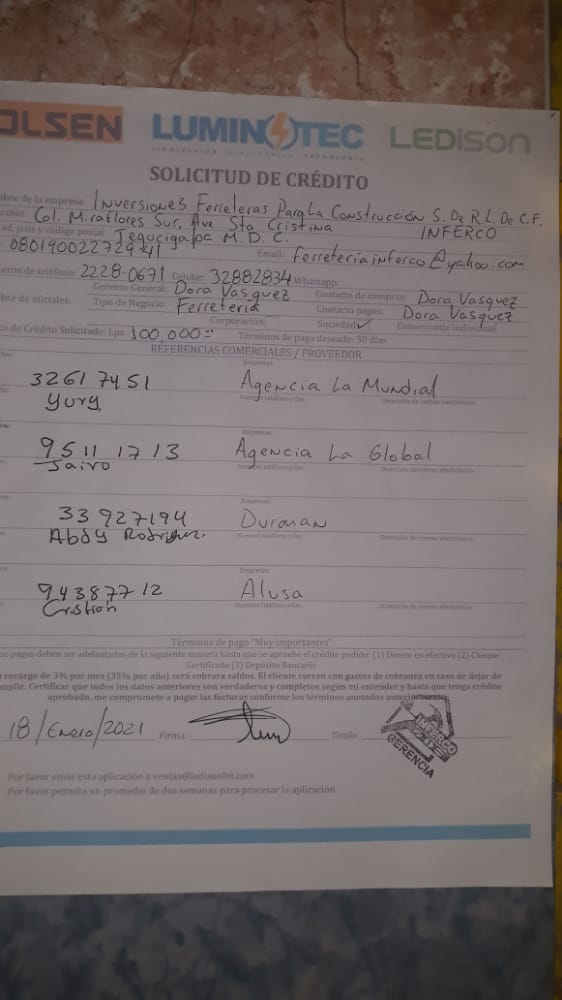 OLSEN LUMINOTEC LEDison
ILUMINACIÓN ELECTRICIDAD TECNOLOGÍA
SOLICITUD DE CRÉDITO
bre de la empresa: Inversiones Ferreteras Para La Construcción S. De R.L. De C.F.
cción: Col. Miraflores Sur, Ave Sta Cristina INFERCO
ad, país y código postal: Tegucigalpa M.D.C.
08019002272941 Email: Ferreteriainferco@yahoo.com
eros de teléfono: 2228-0671 Celular: 32882834 Whatsapp:
Gerente General: Dora Vasquez Contacto de compras: Dora Vasquez
bre de oficiales: Tipo de Negocio: Ferreteria Contacto pagos: Dora Vasquez
Corporación Sociedad ✓ Comerciante Individual
to de Crédito Solicitado: Lps. 100,000= Términos de pago deseado: 30 días
REFERENCIAS COMERCIALES / PROVEEDOR
Empresa:
32617451 Agencia La Mundial
Yury Numero teléfono y fax: Dirección de correo electrónico:
Empresa:
95111713 Agencia La Global
Jairo Numero teléfono y fax: Dirección de correo electrónico:
Empresa:
33927194 Durman
Abdy Rodriguez. Numero teléfono y fax: Dirección de correo electrónico:
Empresa:
94387712 Alusa
Cristian Numero teléfono y fax: Dirección de correo electrónico:
Términos de pago "Muy importantes"
os pagos deben ser adelantados de la siguiente manera hasta que se apruebe el crédito pedido: (1) Dinero en efectivo (2) Cheque
Certificado (3) Depósito Bancario
n recargo de 3% por mes (35% por año) será cobrara saldos. El cliente correo con gastos de cobranza en caso de dejar de
mplir. Certificar que todos los datos anteriores son verdaderos y completos según mi entender y hasta que tenga crédito
aprobado, me comprometo a pagar las facturas conforme los términos anotados anteriormente.
18/Enero/2021 Firma: Titulo:
INFERCO
GERENCIA
Por favor envié esta aplicación a ventas@ledisonhn.com
Por favor permita un promedio de dos semanas para procesar la aplicación